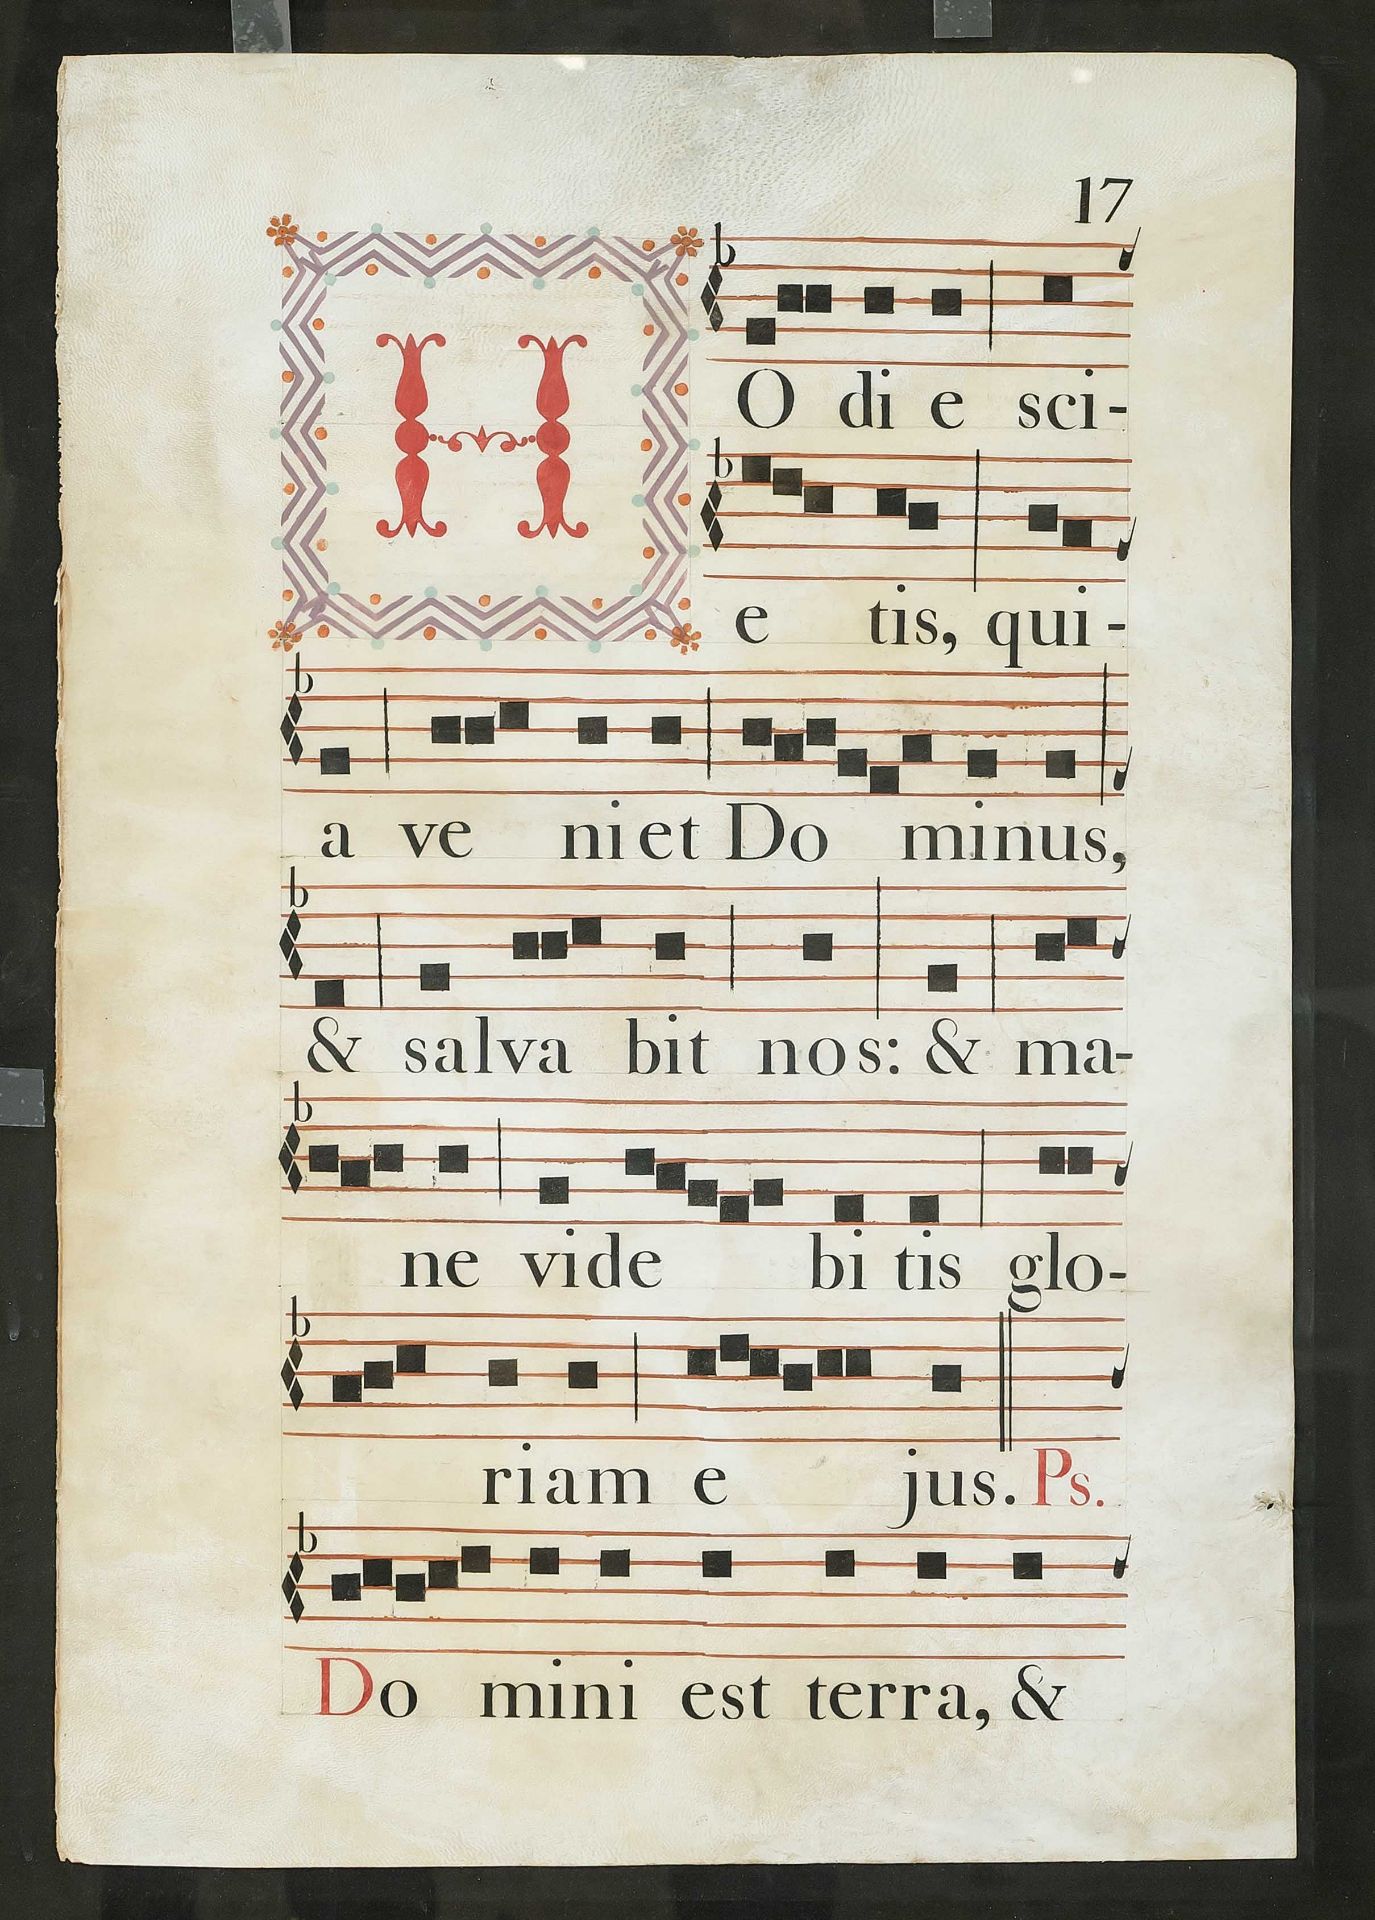 17
HO di e sci-
e tis, qui-
a ve ni et Do minus,
& salva bit nos: & ma-
ne vide bi tis glo-
riam e jus. Ps.
Do mini est terra, &